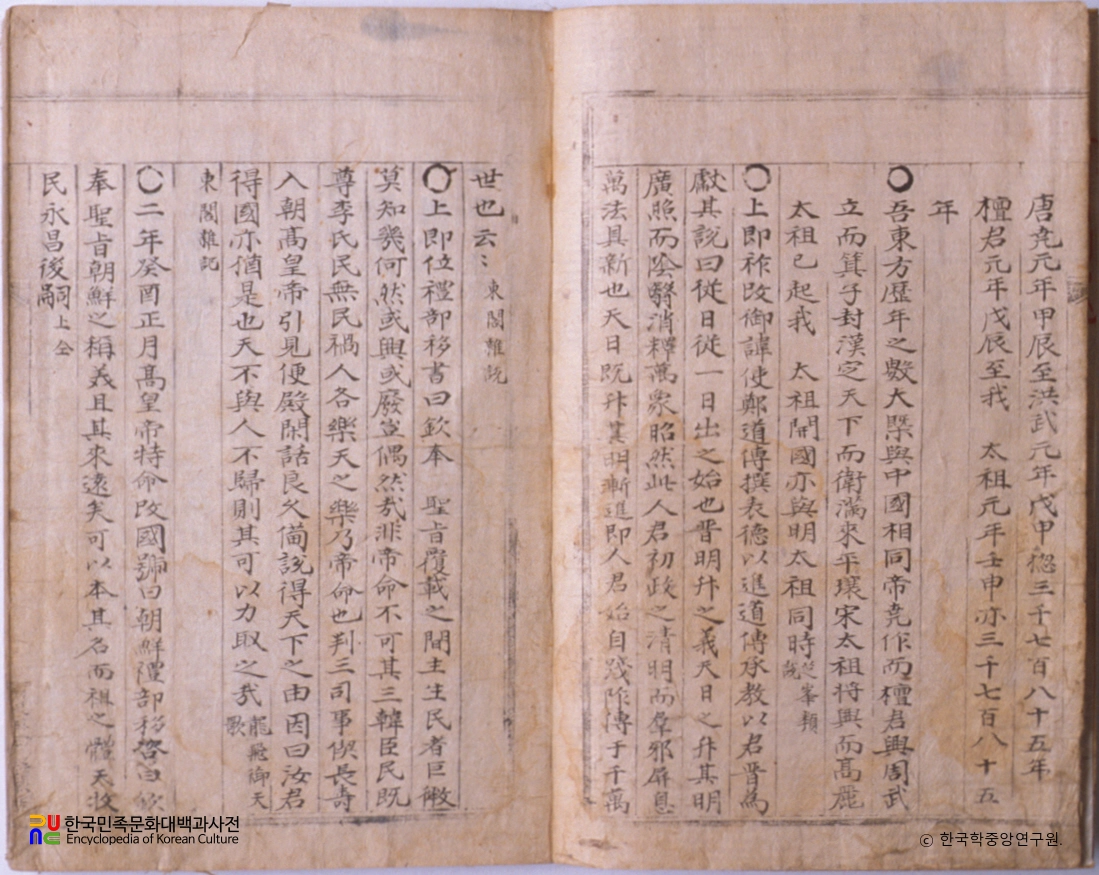 唐尭元年甲辰至洪武元年戊申揔三千七百八十五年
檀君元年戊辰至我 太祖元年壬申亦三千七百八十五
年
○吾東方歷年之數大槩與中國相同帝尭作而檀君興周武
立而箕子封漢定天下而衛滿來平壤宋太祖将興而高麗
太祖已起我 太祖開國亦與明太祖同時 芝峯類說
○上即祚改御諱使鄭道傳撰表德以進道傳承教以君晋為
獻其說曰従日従一日出之始也晋明升之義天日之升其明
廣照而陰翳消釋萬象昭然此人君初政之清明而羣邪屏息
萬法具新也天日既升其明漸進即人君始自踐阼傳于千萬
世也云〻 東閣雜說
○上即位禮部移書曰欽奉 聖旨覆載之間主生民者巨微
莫知幾何然或興或廢豈偶然哉非帝命不可其三韓臣民既
尊李氏民無民禍人各樂天之樂乃帝命也判三司事偰長壽
入朝高皇帝引見便殿閑話良久備說得天下之由因曰汝君
得國亦猶是也天不與人不歸則其可以力取之哉 龍飛御天歌
東閣雜記
○二年癸酉正月高皇帝特命改國號曰朝鮮禮部移咨曰欽
奉聖旨朝鮮之稱義且其來遠矣可以本其名而祖之體天牧
民永昌後嗣 上仝
한국민족문화대백과사전
Encyclopedia of Korean Culture
© 한국학중앙연구원.